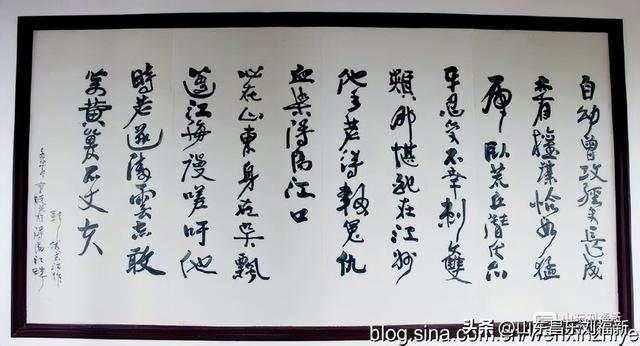 自幼曾攻經史長成
亦有權謀恰如猛
虎臥荒丘潛伏爪
牙忍受不幸刺雙
頰那堪配在江州
他年若得報冤仇
血染潯陽江口
心在山東身在吳飄
蓬江海謾嗟吁他
時若遂凌雲志敢
笑黄巢不丈夫
潯陽江畔
头条 @山东昌乐刘福新
blog.sina.com.cn/wenxinzhiye